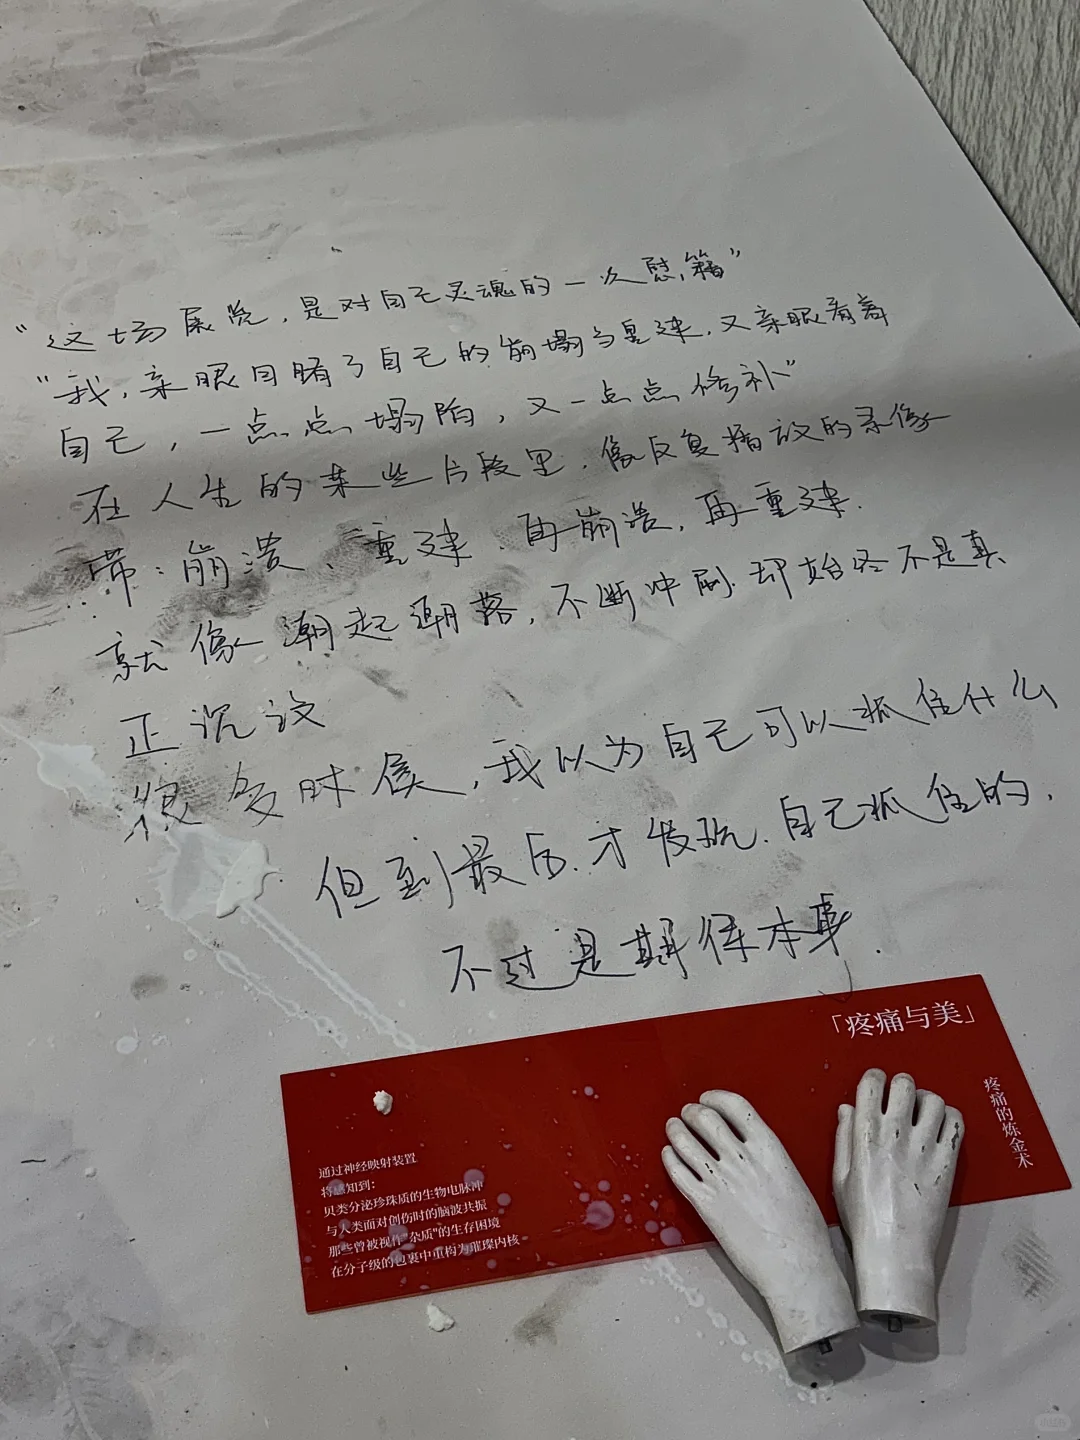 “这场展览，是对自己灵魂的一次慰藉”
“我，亲眼目睹了自己的崩塌与重建，又亲眼看着
自己，一点点塌陷，又一点点修补”
在人生的某些片段里，像反复播放的录像
带：崩溃、重建、再崩溃，再重建.
就像潮起潮落，不断冲刷 却始终不是真
正沉没
很多时候，我以为自己可以抓住什么
但到最后，才发现，自己抓住的，
不过是期待本身.
「疼痛与美」
疼痛的炼金术
通过神经映射装置
将感知到：
贝类分泌珍珠质的生物电脉冲
与人类面对创伤时的脑波共振
那些曾被视作"杂质"的生存困境
在分子级的包裹中重构为璀璨内核
小红书